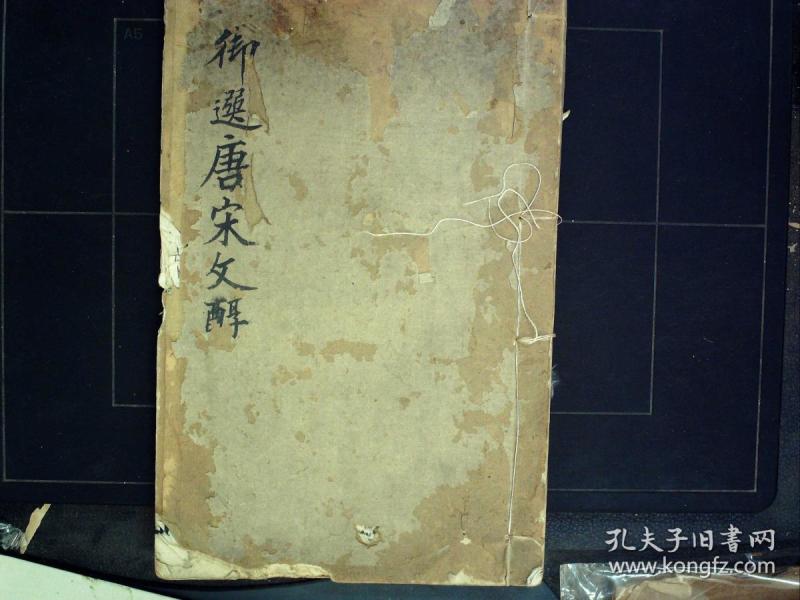 御選唐宋文醇
A5
孔夫子旧書网
www.kongfz.com